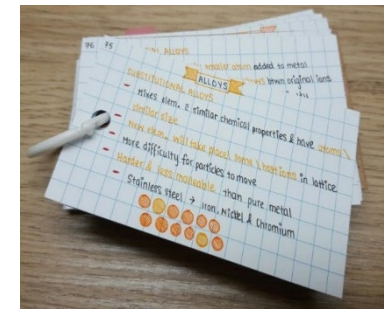 76 75
ALLOYS
smaller atoms added to metal
ALLOYS
btwn original ions
SUBSTITUTIONAL ALLOYS
- Mixes elem. c similar chemical properties & have atoms \
similar size
- New elem. will take place! ions \ in lattice
- More difficulty for particles to move
- Harder & less malleable than pure metal
- Stainless steel → Iron, Nickel & Chromium